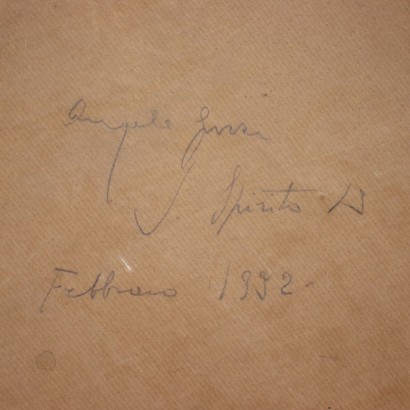 Angelo
S. Spirito 13
Febbraio 1932